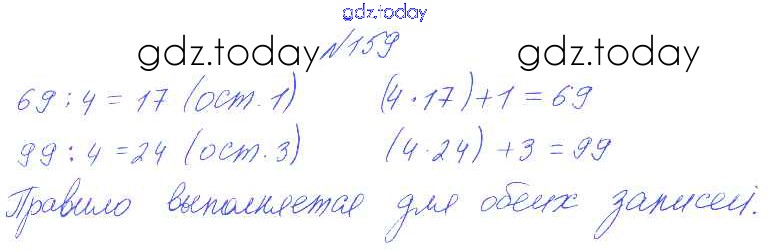 gdz.today
gdz.today №159 gdz.today
69 : 4 = 17 (ост. 1) (4 · 17) + 1 = 69
99 : 4 = 24 (ост. 3) (4 · 24) + 3 = 99
Правило выполняется для обеих записей.